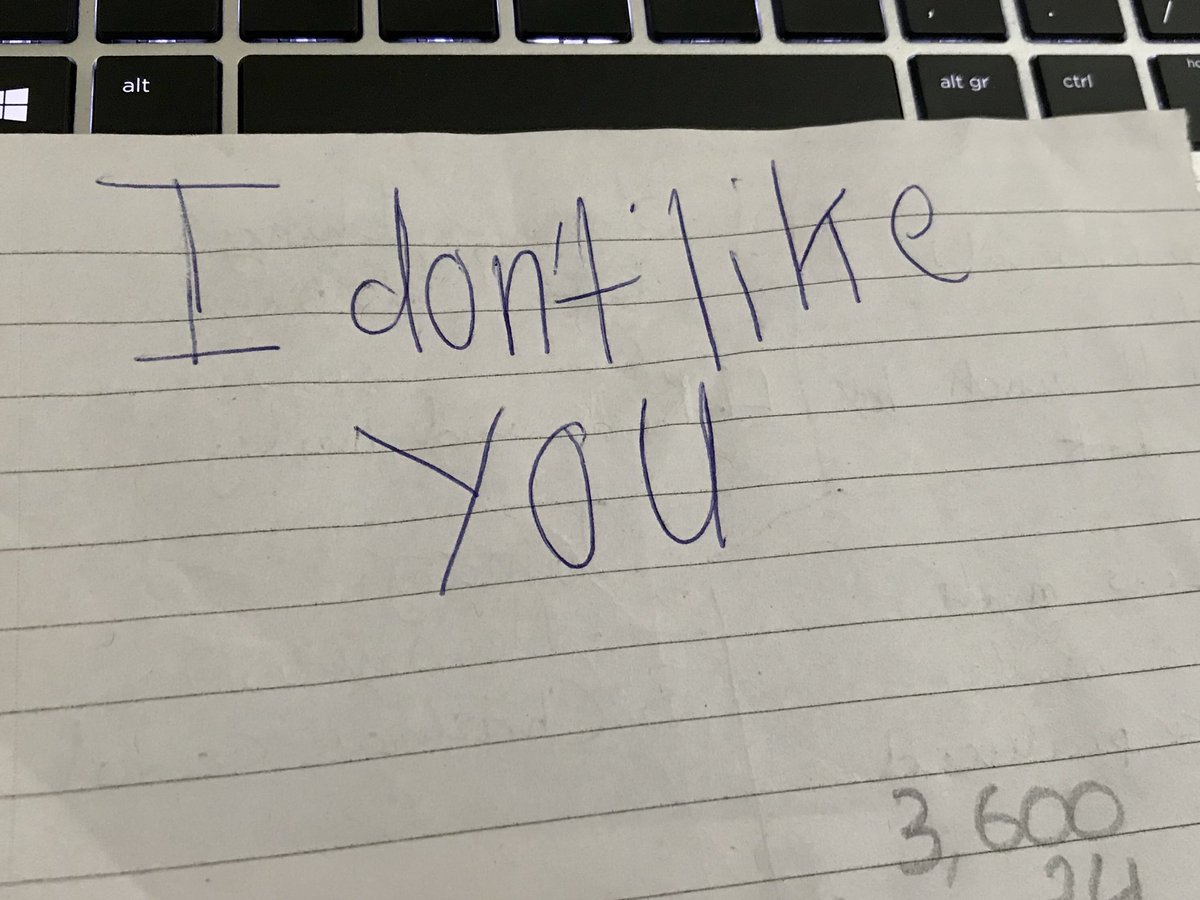 alt alt gr ctrl
I don't like
you
3,600